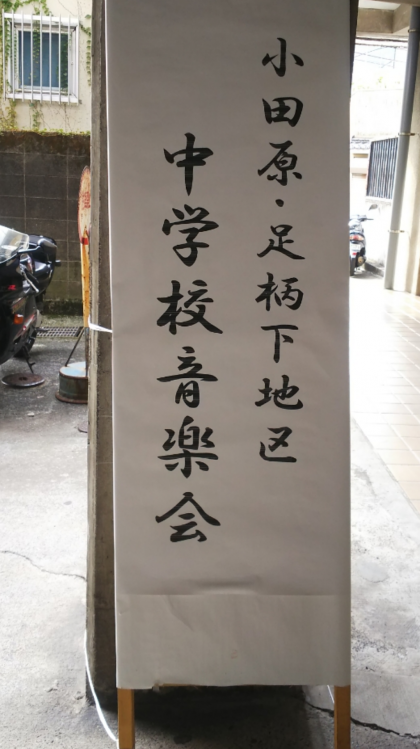 小田原・足柄下地区
中学校音楽会